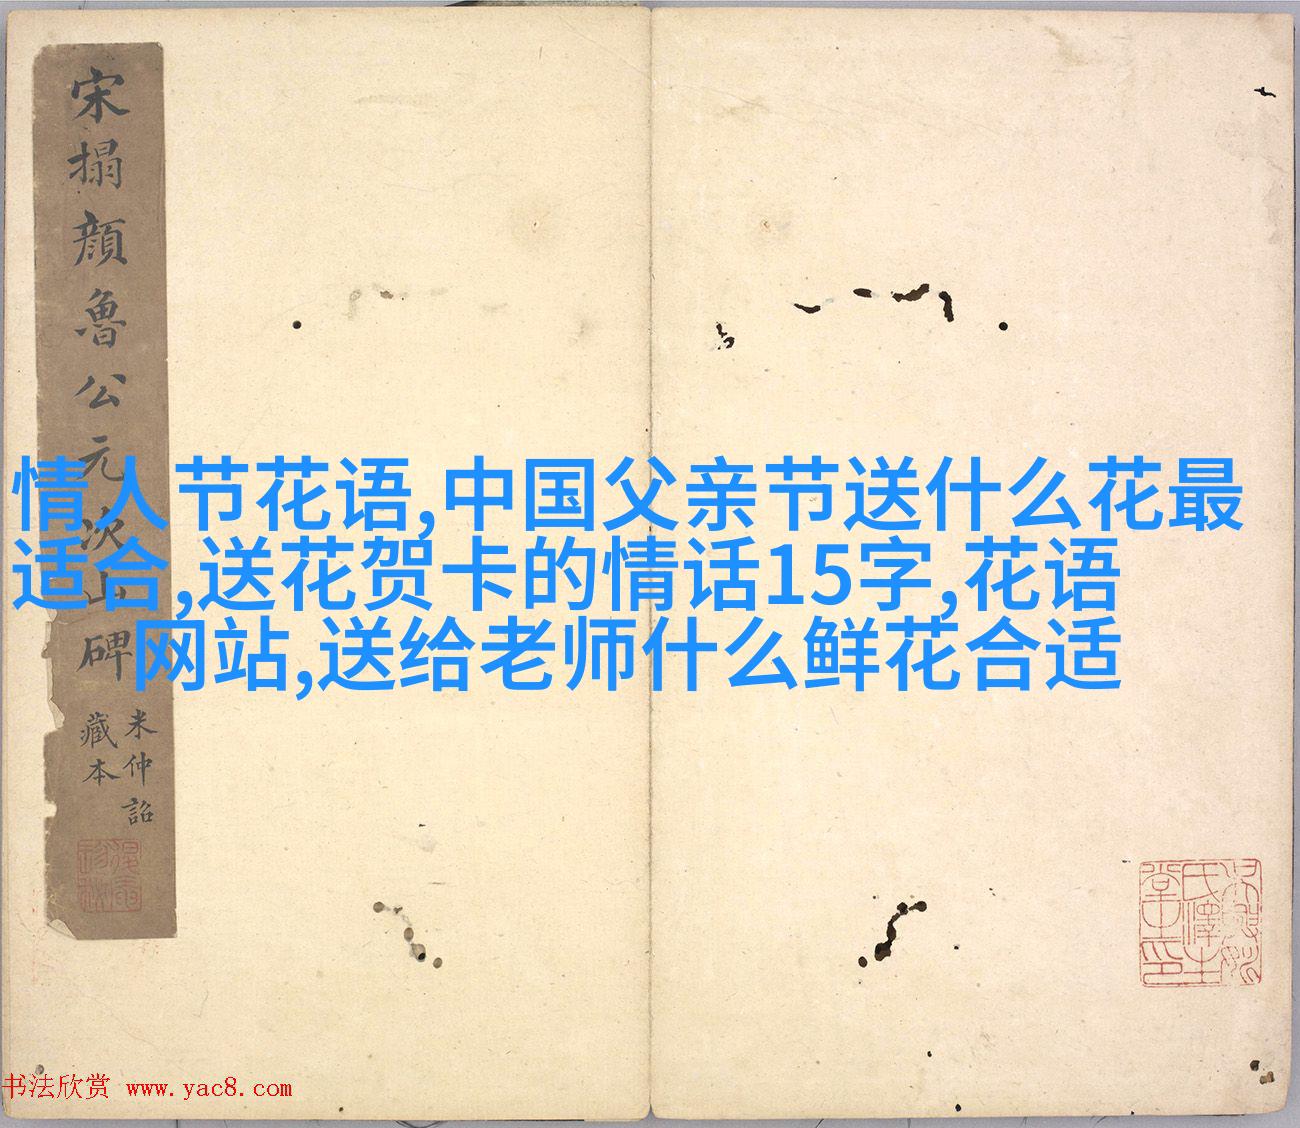 宋搨顏魯公元次山碑
米仲詔
藏本
情人节花语,中国父亲节送什么花最
适合,送花贺卡的情话15字,花语
网站,送给老师什么鲜花合适
书法欣赏 www.yac8.com